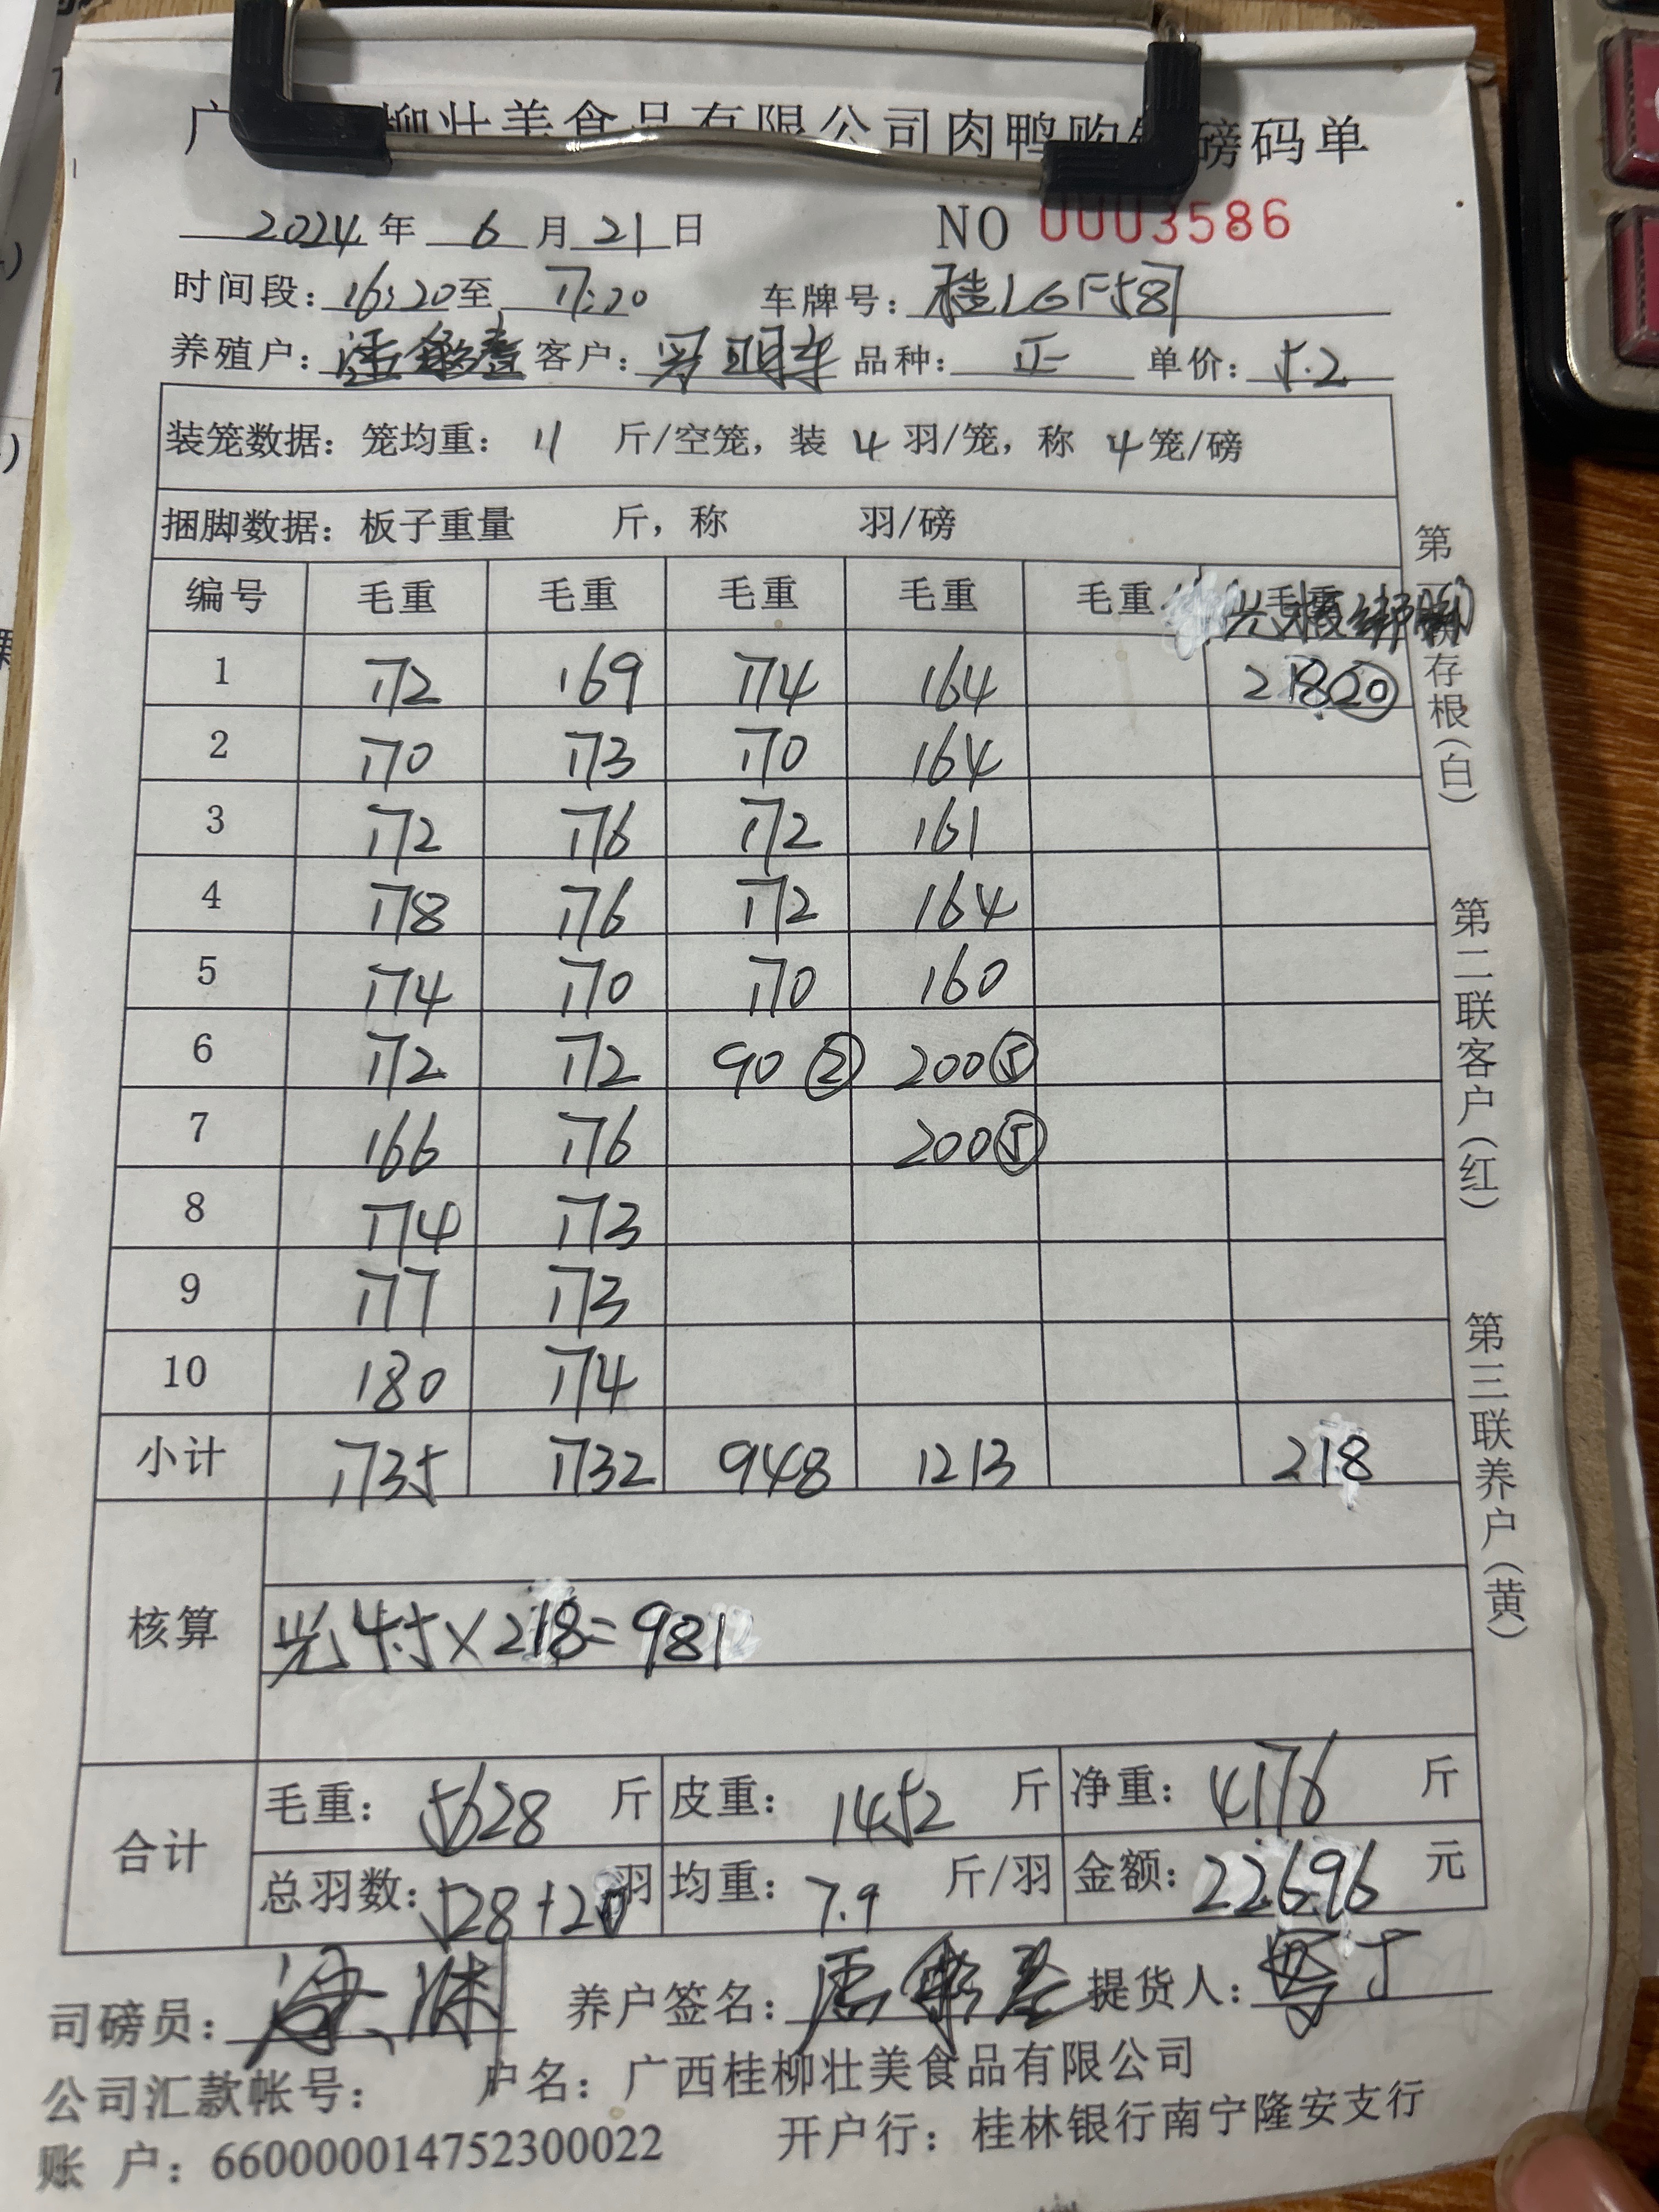 广 柳壮美食品有限公司肉鸭购 磅码单
2024年 6 月 21 日 NO 0003586
时间段：16:20至 17:20 车牌号：桂LGF587
养殖户： 客户： 明 品种：正 单价：5.2
装笼数据：笼均重：11 斤/空笼，装 4 羽/笼，称 4 笼/磅
捆脚数据：板子重量 斤，称 羽/磅
编号 毛重 毛重 毛重 毛重 毛重 光 绑脚
1 172 169 174 164 218 ⑳
2 170 173 170 164
3 172 176 172 161
4 178 176 172 164
5 174 170 170 160
6 172 172 90 ② 200 ⑤
7 166 176 200 ⑤
8 174 173
9 177 173
10 180 174
小计 1735 1732 948 1213 218
核算
光 4.5×218=981
合计 毛重：5628 斤 皮重：1452 斤 净重：4176 斤
总羽数：528+20羽 均重：7.9 斤/羽 金额：22696 元
司磅员： 养户签名： 提货人：
公司汇款帐号： 户名：广西桂柳壮美食品有限公司
账 户：660000014752300022 开户行：桂林银行南宁隆安支行
第 存根（白）
第二联客户（红）
第三联养户（黄）